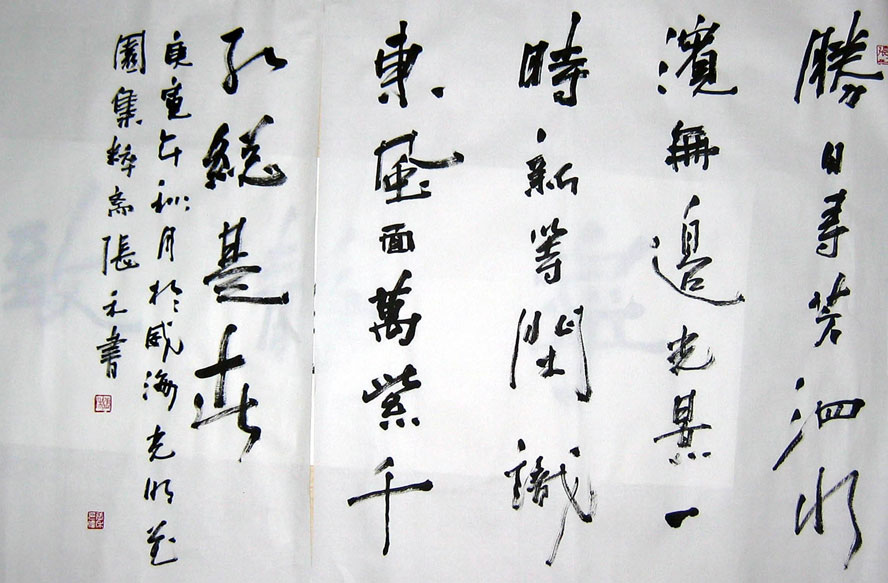 勝日尋芳泗水
濱無邊光景一
時新等閑識
東風面萬紫千
紅總是春
庚寅年秋月於威海光明花
園集粹齋張書